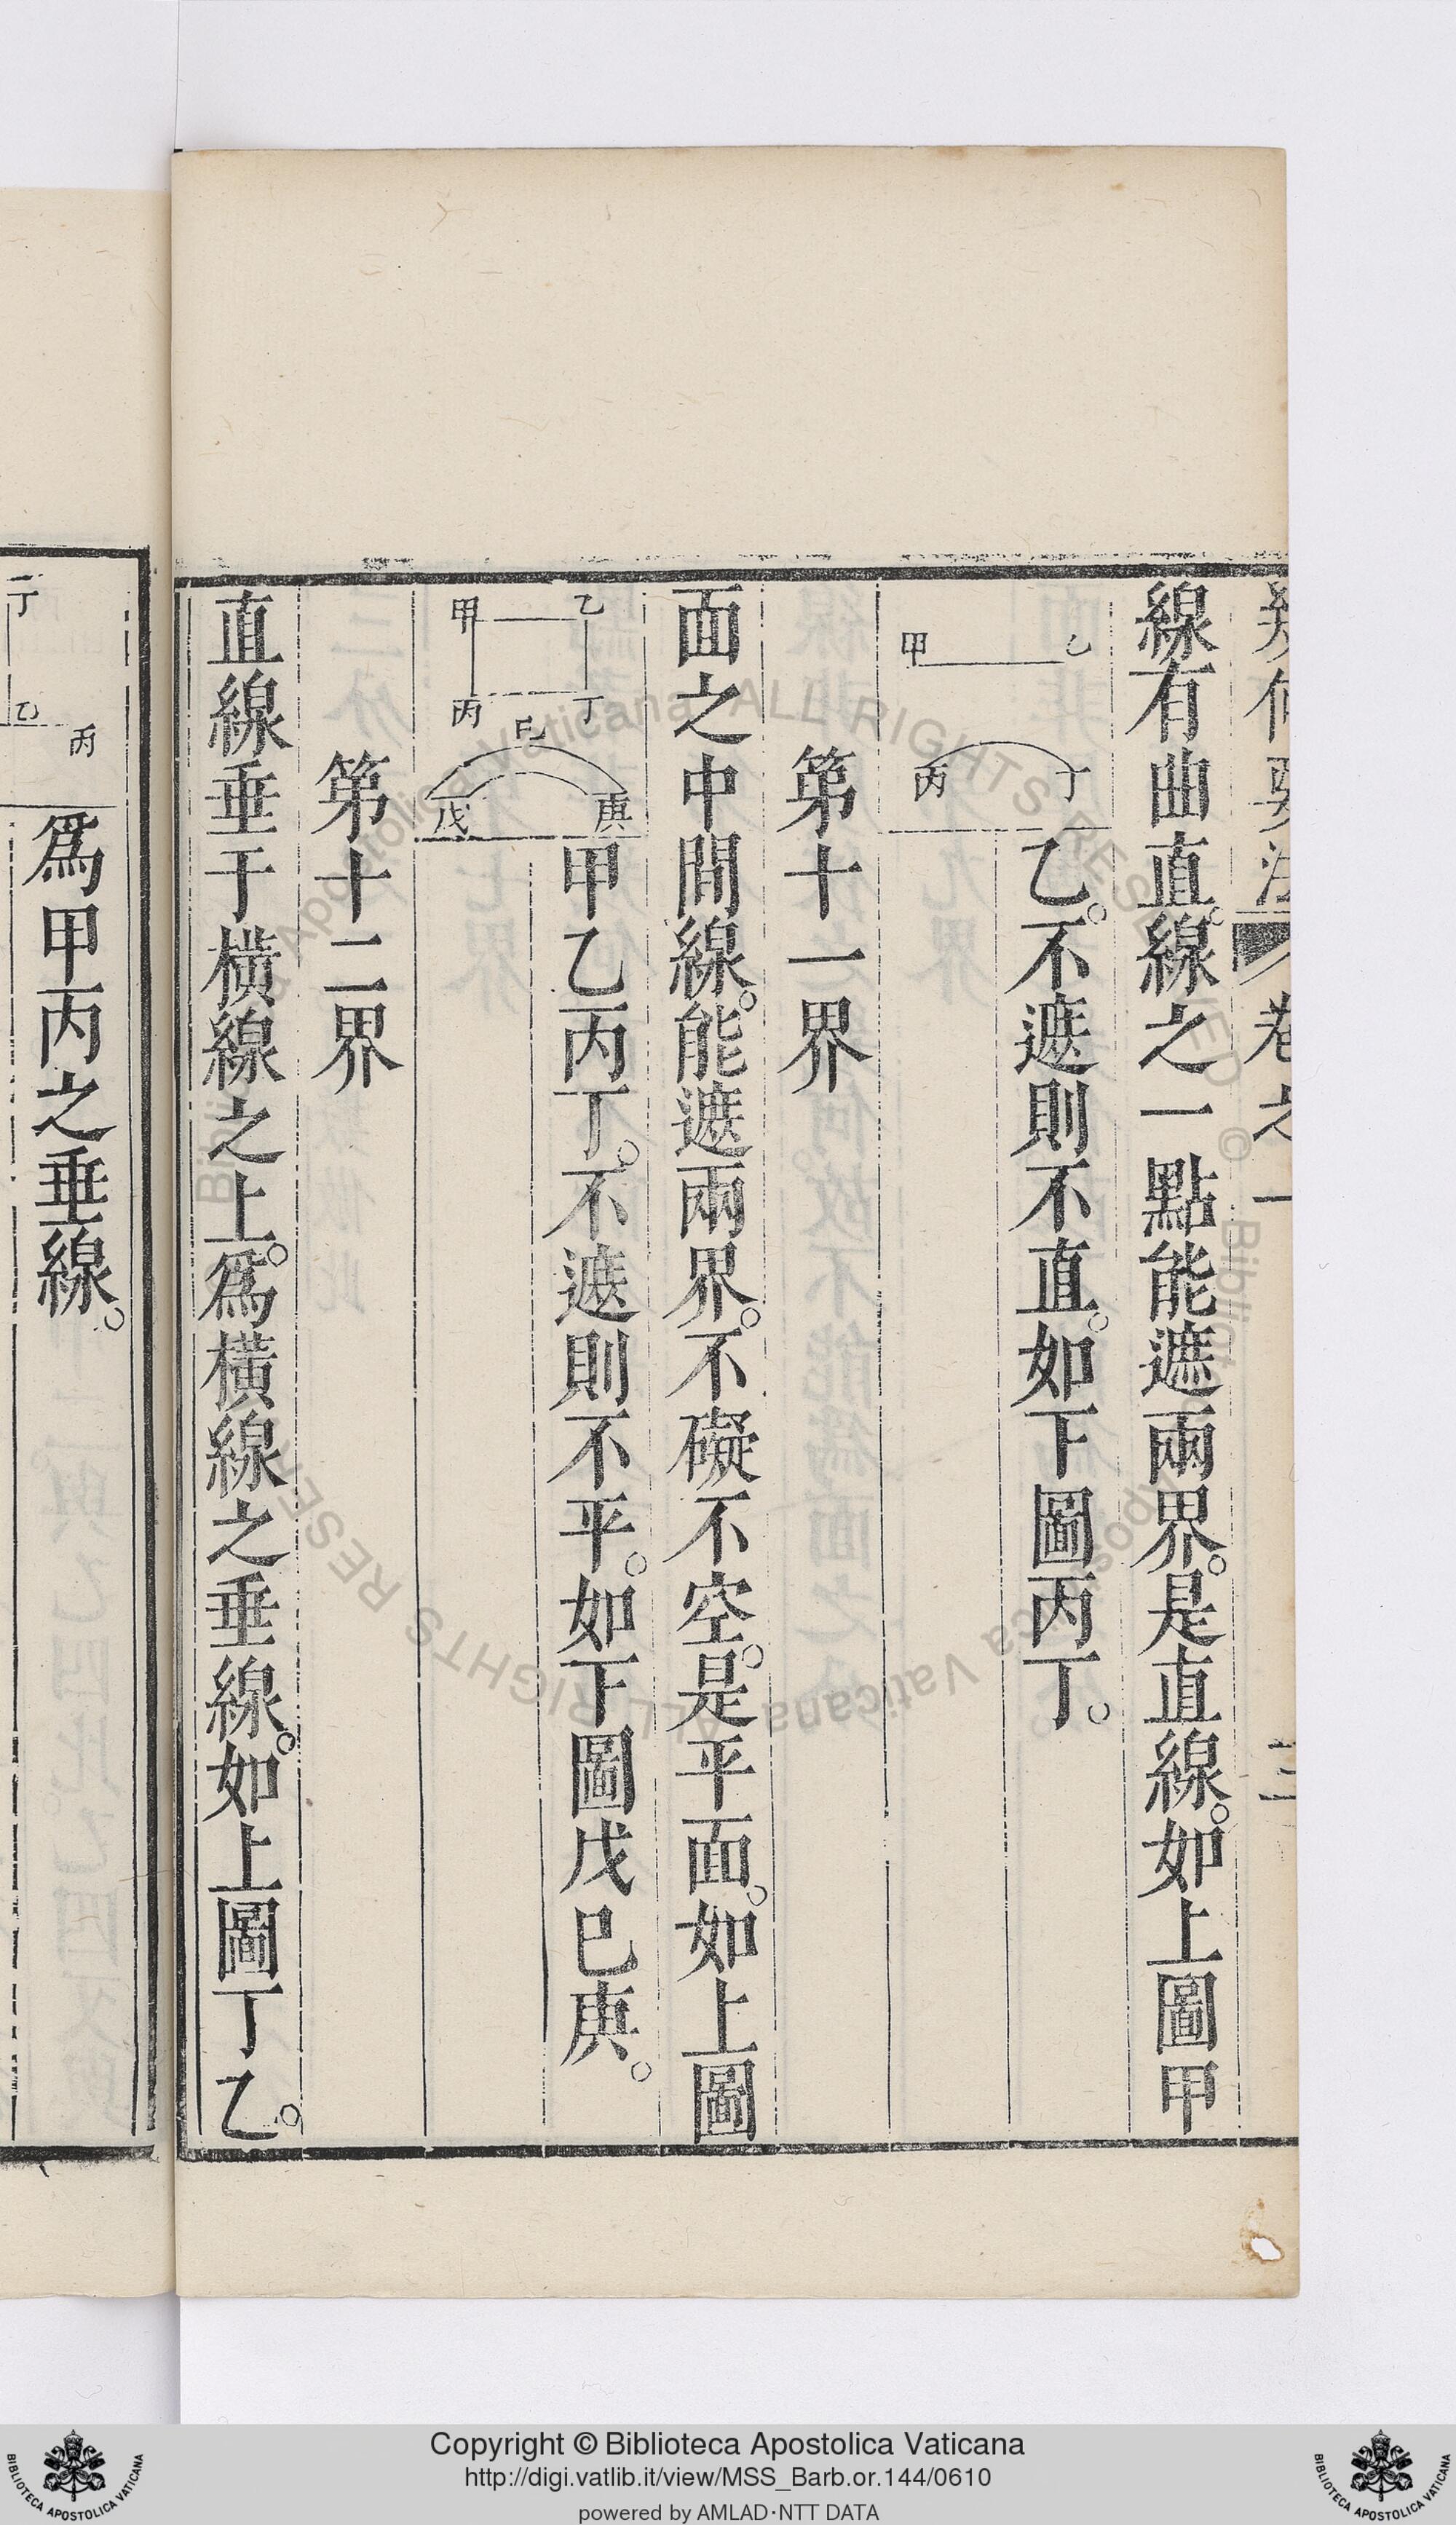 幾何要法 卷之一 三
線有曲直。線之一點能遮兩界。是直線。如上圖甲
乙。不遮則不直。如下圖丙丁。
甲 乙
丙 丁
第十一界
面之中間線。能遮兩界。不礙不空。是平面。如上圖
甲乙丙丁。不遮則不平。如下圖戊巳庚。
甲 乙
丙 丁
戊 巳 庚
第十二界
直線垂于橫線之上。爲橫線之垂線。如上圖丁乙。
爲甲丙之垂線。
丁
乙 丙
Biblioteca Apostolica Vaticana ALL RIGHTS RESERVED ©
Copyright © Biblioteca Apostolica Vaticana
http://digi.vatlib.it/view/MSS_Barb.or.144/0610
powered by AMLAD·NTT DATA
BIBLIOTECA APOSTOLICA VATICANA
BIBLIOTECA APOSTOLICA VATICANA